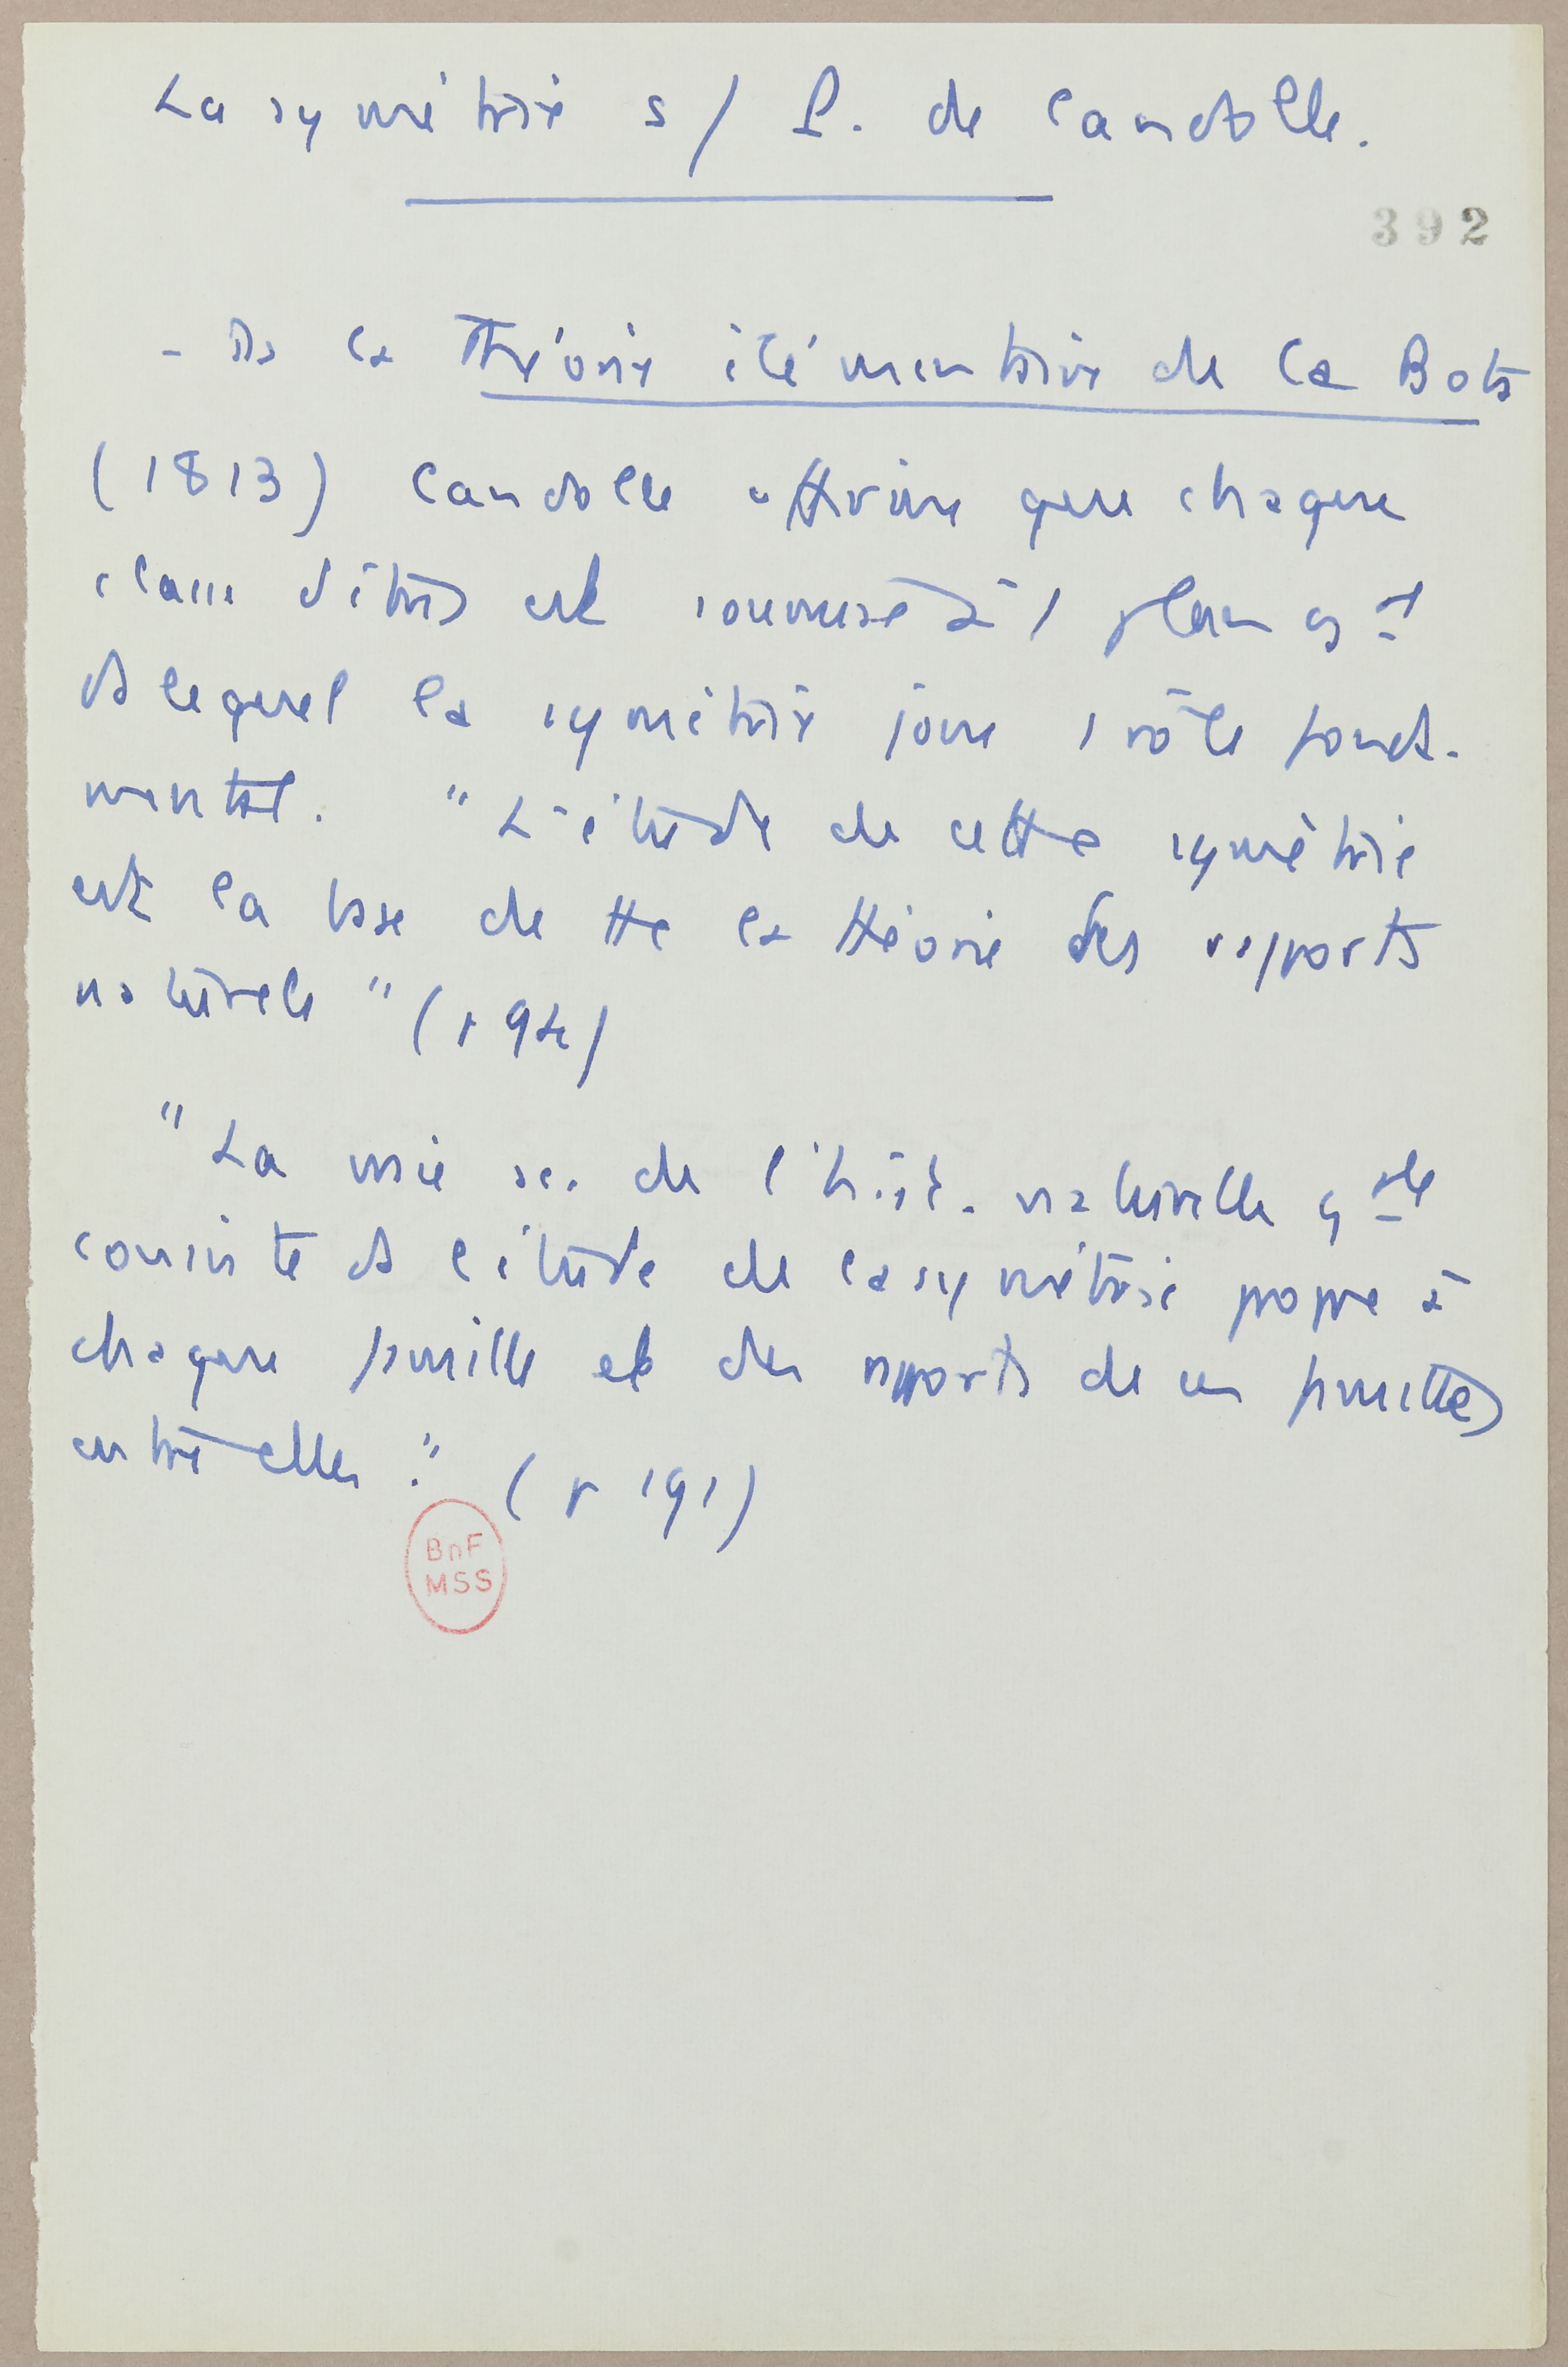 La symétrie s/ P. de Candolle.
392
- ds la Théorie élémentaire de la Bota
(1813) Candolle affirme que chaque
classe d'êtres est soumise à 1 plan gal
ds lequel la symétrie joue 1 rôle fonda-
mental. "L'étude de cette symétrie
est la base de tte la théorie des rapports
naturels" (p 94)
"La vraie sc. de l'hist. naturelle gale
consiste ds l'étude de la symétrie propre à
chaque famille et des rapports de ces familles
entre elles." (p 191)
BnF
MSS